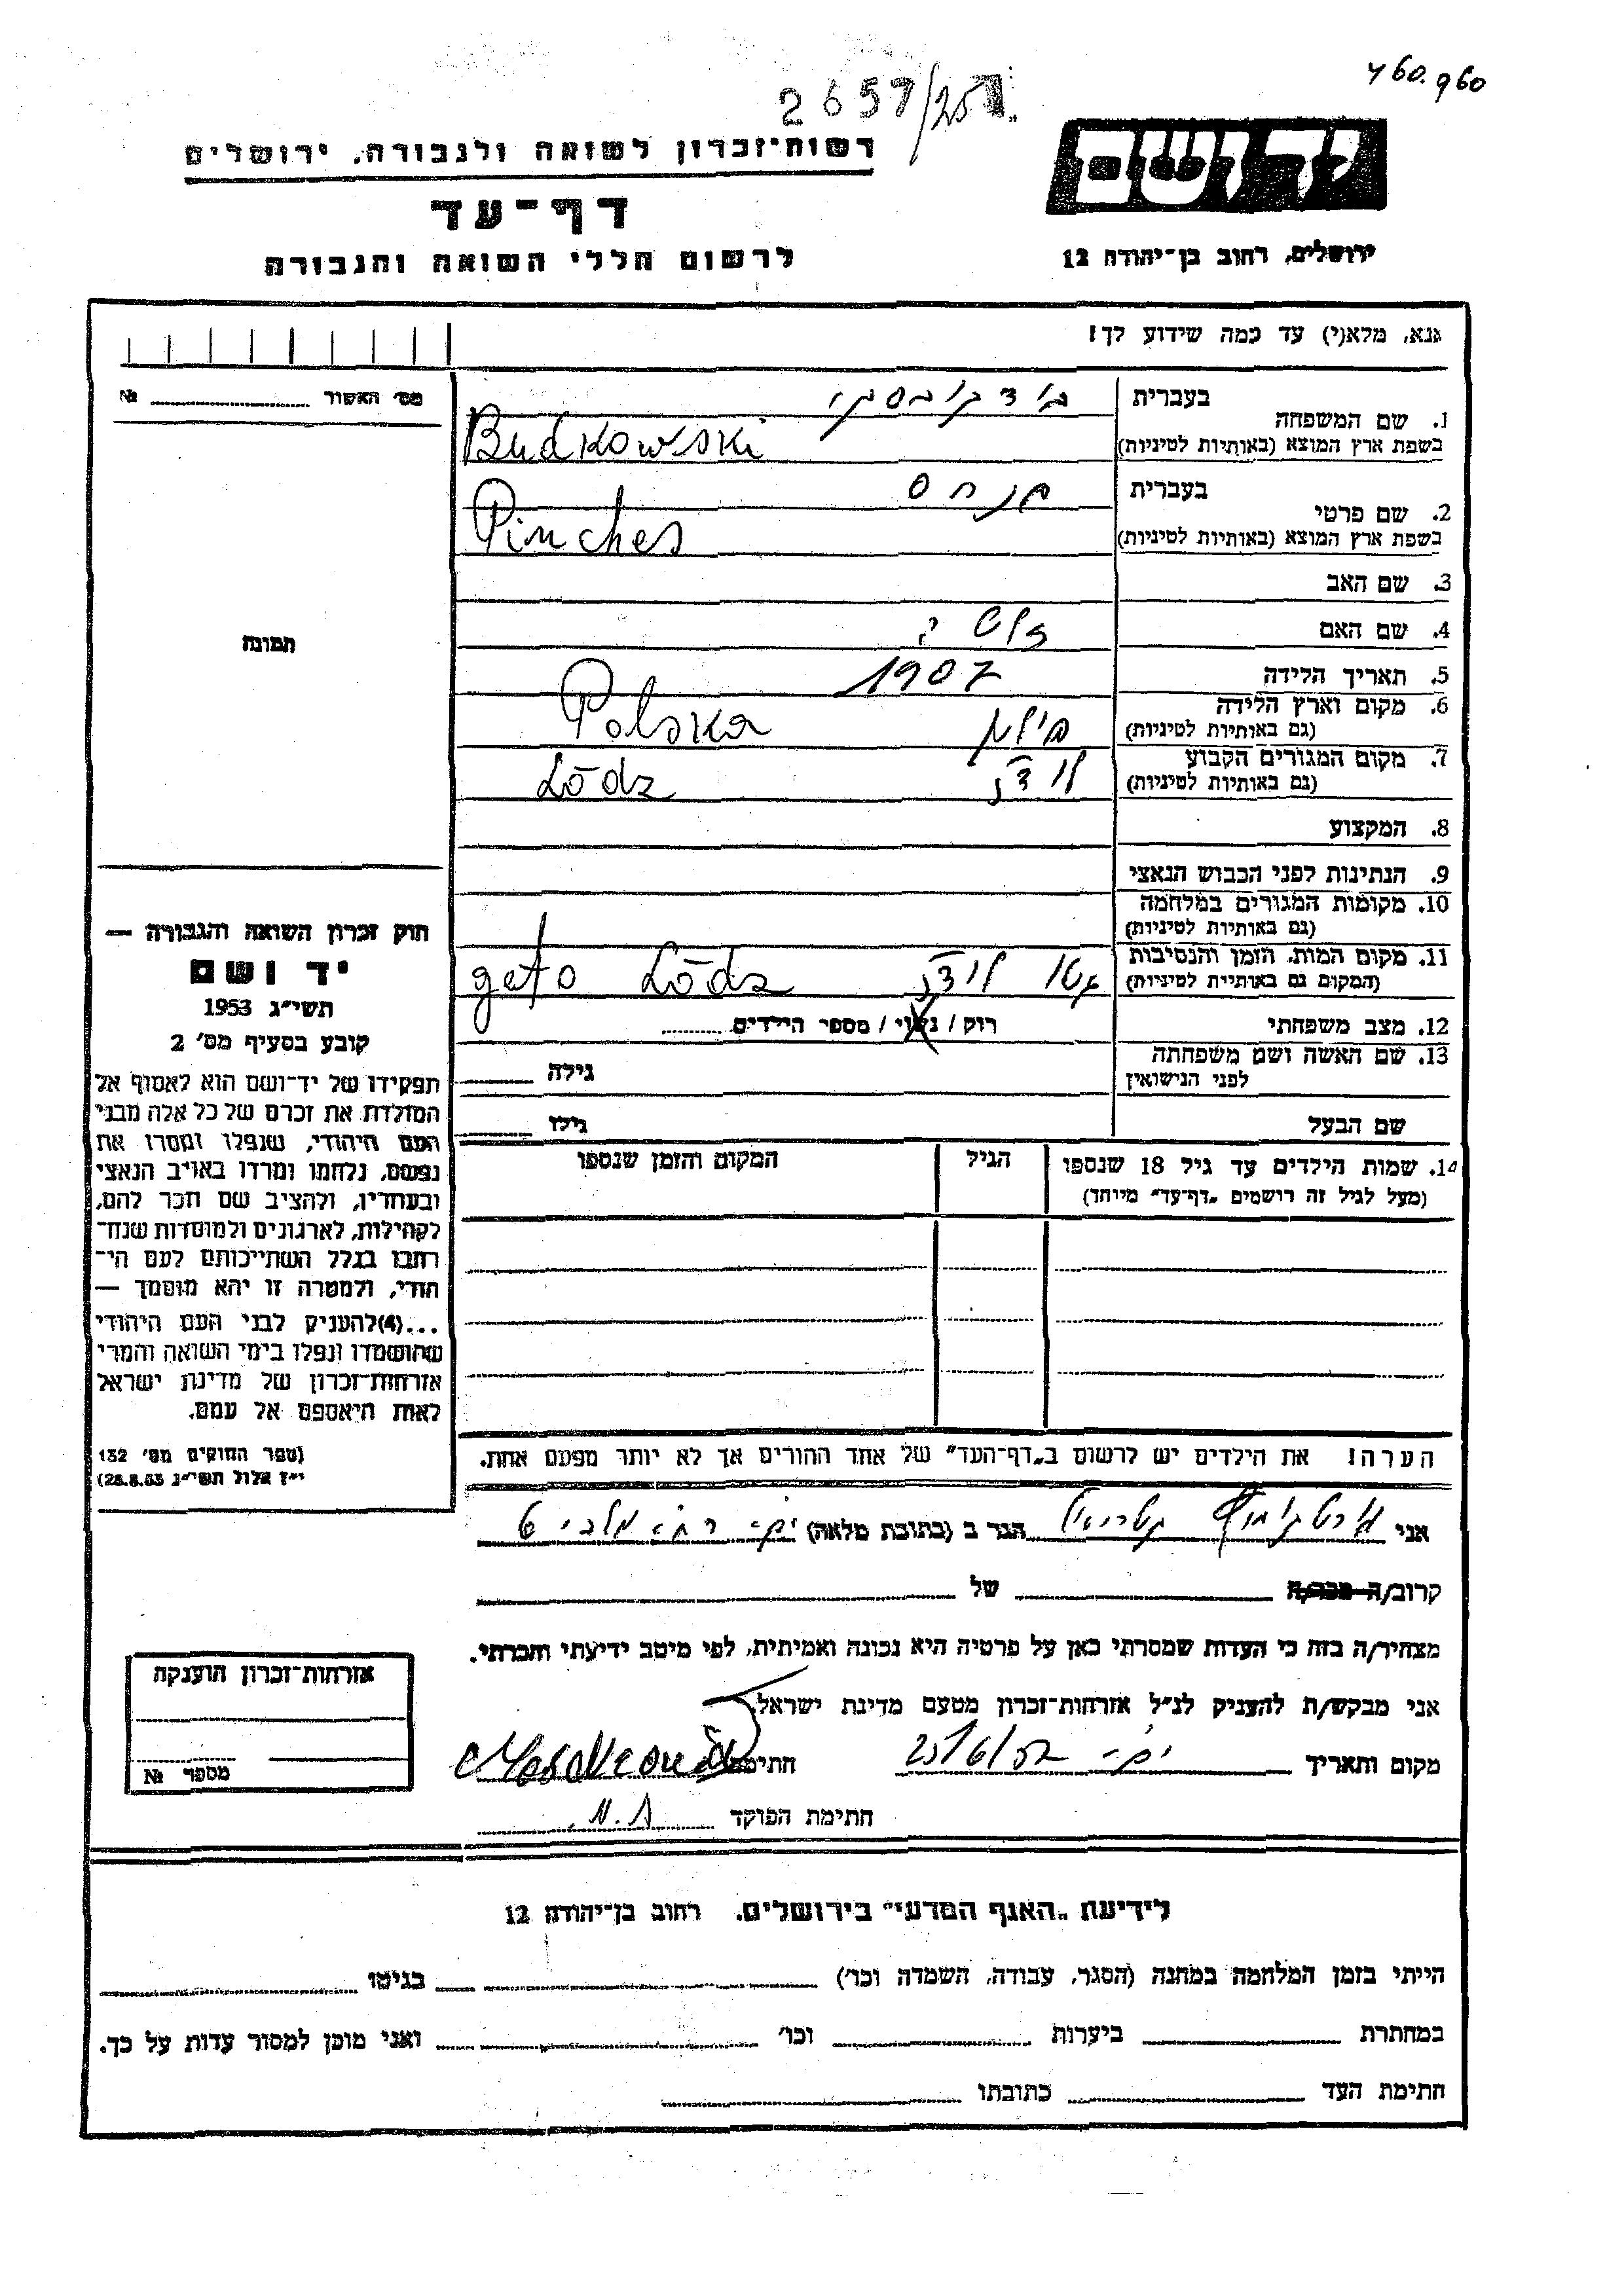 460.960
2657/251
יד ושם
רשות־זכרון לשואה ולגבורה, ירושלים
דף־עד
לרשום חללי השואה והגבורה
ירושלים, רחוב בן־יהודה 12
נא, מלא(י) עד כמה שידוע לך!
מס׳ האשור № ........
1. שם המשפחה
בעברית
בודקובסקי
בשפת ארץ המוצא (באותיות לטיניות)
Budkowski
2. שם פרטי
בעברית
פנחס
בשפת ארץ המוצא (באותיות לטיניות)
Pinches
3. שם האב
4. שם האם
5. תאריך הלידה 1907
6. מקום וארץ הלידה
(גם באותיות לטיניות)
פולין Polska
7. מקום המגורים הקבוע
(גם באותיות לטיניות)
לודז׳ Lōdz
8. המקצוע
9. הנתינות לפני הכבוש הנאצי
10. מקומות המגורים במלחמה
(גם באותיות לטיניות)
11. מקום המות, הזמן והנסיבות
(המקום גם באותיית לטיניות)
גטו לודז׳ geto Lōdz
12. מצב משפחתי רוק / נשוי / מספר הילדים ........
13. שם האשה ושם משפחתה
לפני הנישואין
גילה
שם הבעל גילו
14. שמות הילדים עד גיל 18 שנספו
(מעל לגיל זה רושמים „דף־עד” מייוחד)
הגיל
המקום והזמן שנספו
תמונה
חוק זכרון השואה והגבורה —
יד ושם
תשי״ג 1953
קובע בסעיף מס׳ 2
תפקידו של יד־ושם הוא לאסוף אל
המולדת את זכרם של כל אלה מבני
העם היהודי, שנפלו ומסרו את
נפשם, נלחמו ומרדו באויב הנאצי
ובעוזריו, ולהציב שם וזכר להם,
לקהילות, לארגונים ולמוסדות שנח־
רבו בגלל השתייכותם לעם הי־
הודי, ולמטרה זו יהא מוסמך —
...(4)להעניק לבני העם היהודי
שהושמדו ונפלו בימי השואה והמרי
אזרחות־זכרון של מדינת ישראל
לאות היאספם אל עמם.
(ספר החוקים מס׳ 132
י״ז אלול תשי״ג 28.8.53)
הערה! את הילדים יש לרשום ב„דף־העד” של אחד ההורים אך לא יותר מפעם אחת.
אני הגר ב (כתובת מלאה)
קרוב/ה מכר/ה של
מצהיר/ה בזה כי העדות שמסרתי כאן על פרטיה היא נכונה ואמיתית, לפי מיטב ידיעתי והכרתי.
אני מבקש/ת להעניק לנ״ל אזרחות־זכרון מטעם מדינת ישראל.
מקום ותאריך חתימה
חתימת הפוקד
אזרחות־זכרון הוענקה
מספר №
לידיעת „האגף המדעי” בירושלים. רחוב בן־יהודה 12
הייתי בזמן המלחמה במחנה (הסגר, עבודה, השמדה וכו׳) בגיטו
במחתרת ביערות וכו׳ ואני מוכן למסור עדות על כך.
חתימת העד כתובתו